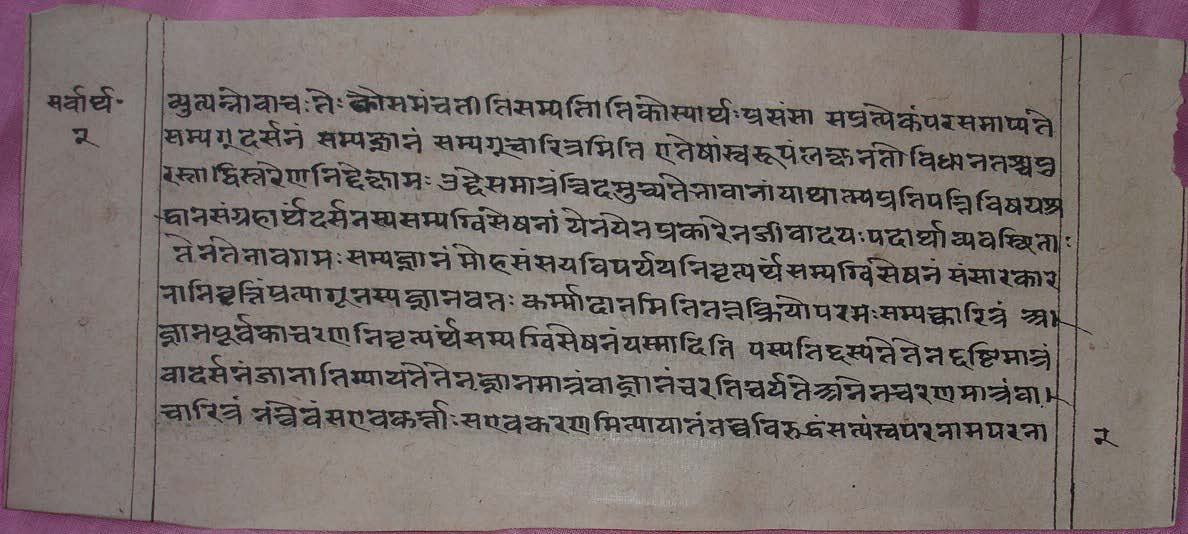 सर्वार्थ॰
२
व्युत्पन्नो वा चः तेः कोसमंचतीतिसम्यतिातिकोस्यार्थःप्रसंसा सप्रत्येकंपरसमाप्यते
सम्यग्दर्सनं सम्यक्ज्ञानं सम्यग्चारित्रमिति एतेषांस्वरूपंलक्षनतो विधानतश्च
रस्ताद्विस्तरेणनिर्द्देक्षामः उद्देसमात्रंत्विदमुच्यतेनावानांयाथात्म्यप्रतिपत्तिविषयश्र
द्धानसंग्रहार्थंदर्सनस्यसम्यग्विसेषनां येनयेनप्रकारेनजीवादयःपदार्थाव्यवस्थिताः
तेनतेनावगमःसम्यज्ञानं मोहसंसयविपर्ययनिवृत्यर्थंसम्यग्विसेषनं संसारकार
नानिवृत्तिंप्रत्यागूनस्यज्ञानवतः कर्म्मादानमितितत्तक्रियोपरमःसम्यक्चारित्रं अ।
ज्ञानपूर्वकाचरणनिवृत्यर्थंसम्यग्विसेषनंयस्मादिति पस्यतिदृस्यतेतेनदृष्टिमात्रं
वादर्सनंजानातिग्यायंतेतेनज्ञानमात्रंवाज्ञानंचरतिचर्यतेअनेनचरणमात्रंवा।
चारित्रं नंन्वेवंसएवकर्त्ताःसएवकरणमित्यायातंतच्चविरुद्धंसत्यंस्वपरनामपरना
२